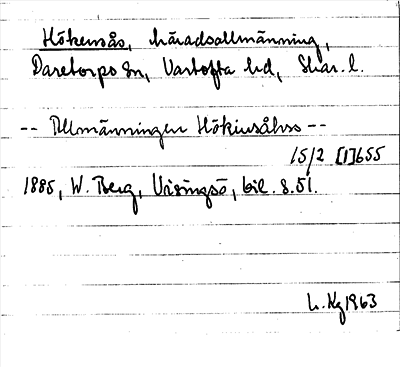 Hökensås, häradsallmänning,
Daretorps sn, Vartofta hd, Skar. l.
-- Allmänningen Hökiusåhss --
15/2 [1]655
1885, W. Berg, Visingsö, bil. s. 51.
L. Kg 1963